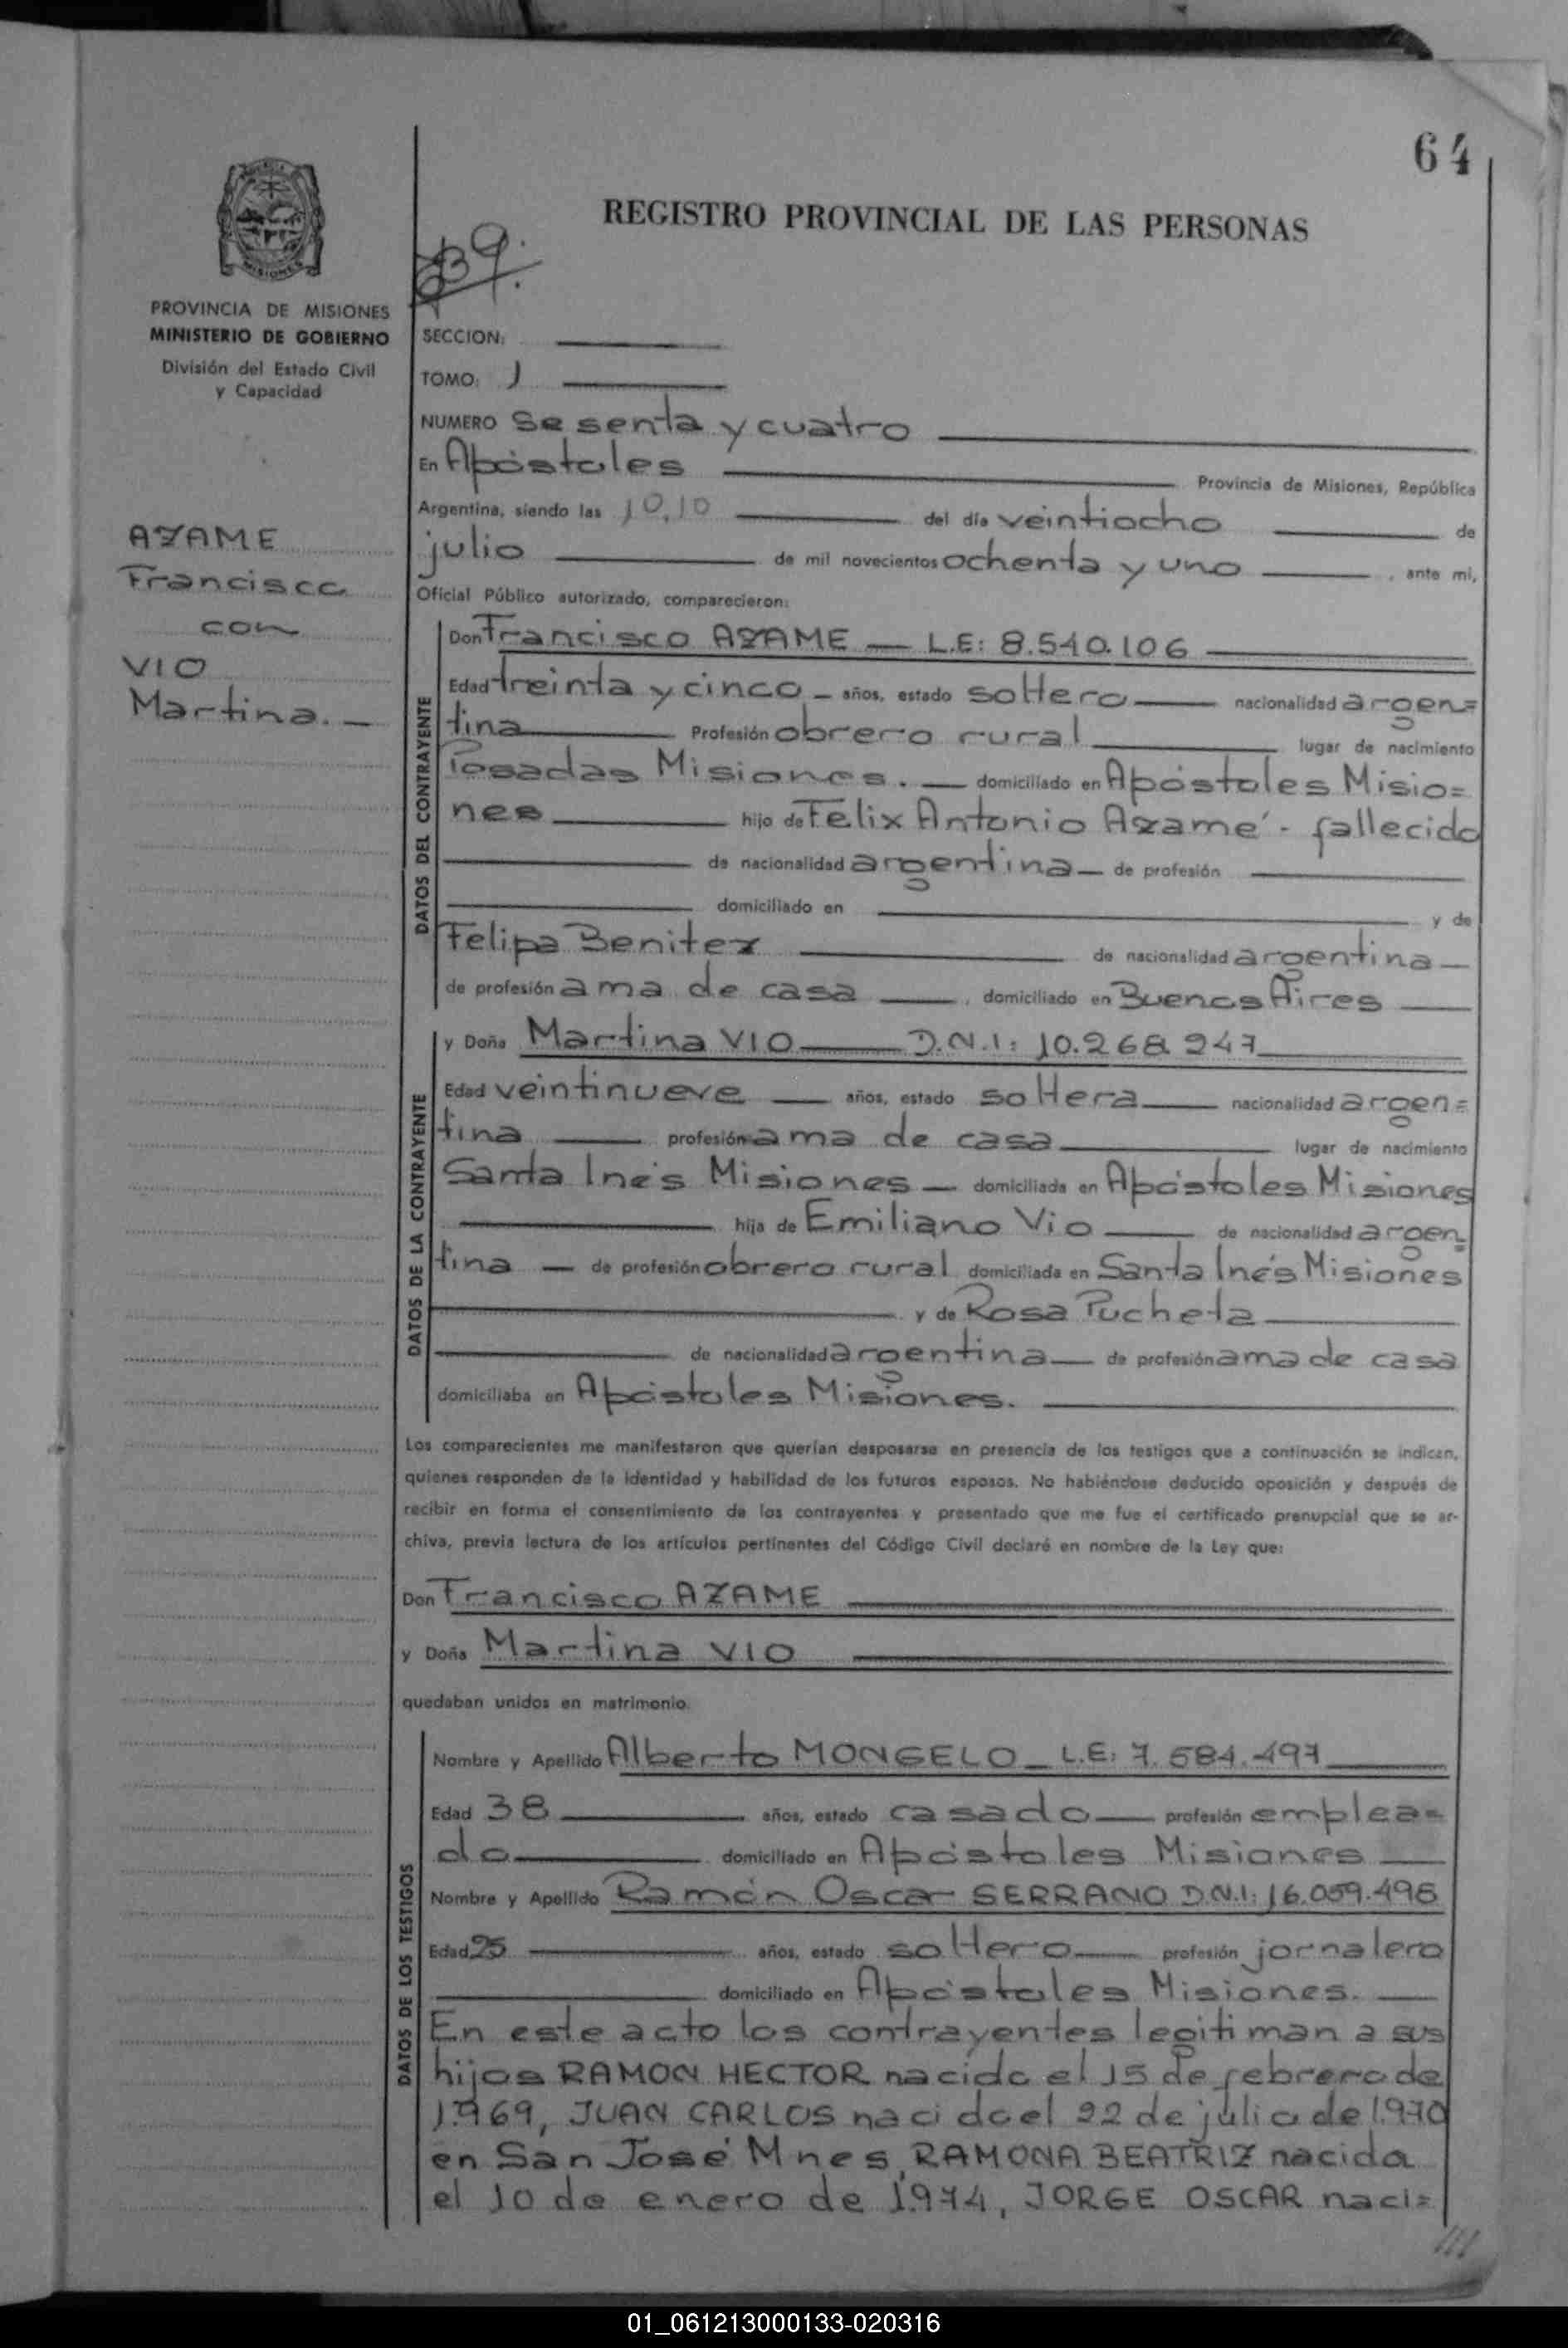 64
REGISTRO PROVINCIAL DE LAS PERSONAS
MISIONES
PROVINCIA DE MISIONES
MINISTERIO DE GOBIERNO
División del Estado Civil
y Capacidad
AZAME
Francisco
con
VIO
Martina. —
SECCION:
TOMO: 1
NUMERO Sesenta y cuatro
En Apóstoles Provincia de Misiones, República
Argentina, siendo las 10,10 del día veintiocho de
julio de mil novecientos ochenta y uno, ante mi,
Oficial Público autorizado, comparecieron:
DATOS DEL CONTRAYENTE
Don Francisco AZAME — L.E: 8.540.106
Edad treinta y cinco — años, estado soltero — nacionalidad argen=
tina Profesión obrero rural lugar de nacimiento
Posadas Misiones. — domiciliado en Apóstoles Misio=
nes hijo de Felix Antonio Azamé - fallecido
de nacionalidad argentina — de profesión
domiciliado en y de
Felipa Benitez de nacionalidad argentina —
de profesión ama de casa —, domiciliado en Buenos Aires —
DATOS DE LA CONTRAYENTE
y Doña Martina VIO — D.N.I: 10.268.247
Edad veintinueve — años, estado soltera — nacionalidad argen=
tina — profesión ama de casa lugar de nacimiento
Santa Inés Misiones — domiciliada en Apóstoles Misiones
hija de Emiliano Vio — de nacionalidad argen=
tina — de profesión obrero rural domiciliada en Santa Inés Misiones
y de Rosa Pucheta
de nacionalidad argentina — de profesión ama de casa
domiciliaba en Apóstoles Misiones.
Los comparecientes me manifestaron que querían desposarse en presencia de los testigos que a continuación se indican,
quienes responden de la identidad y habilidad de los futuros esposos. No habiéndose deducido oposición y después de
recibir en forma el consentimiento de los contrayentes y presentado que me fue el certificado prenupcial que se ar-
chiva, previa lectura de los artículos pertinentes del Código Civil declaré en nombre de la Ley que:
Don Francisco AZAME
y Doña Martina VIO
quedaban unidos en matrimonio.
DATOS DE LOS TESTIGOS
Nombre y Apellido Alberto MONGELO — L.E: 7.584.497
Edad 38 años, estado casado — profesión emplea=
do domiciliado en Apóstoles Misiones —
Nombre y Apellido Ramón Oscar SERRANO D.N.I: 16.059.496
Edad 25 años, estado soltero — profesión jornalero
domiciliado en Apóstoles Misiones. —
En este acto los contrayentes legitiman a sus
hijos RAMON HECTOR nacido el 15 de febrero de
1.969, JUAN CARLOS nacido el 22 de julio de 1.970
en San José Mnes, RAMONA BEATRIZ nacida
el 10 de enero de 1.974, JORGE OSCAR naci=
///
01_061213000133-020316